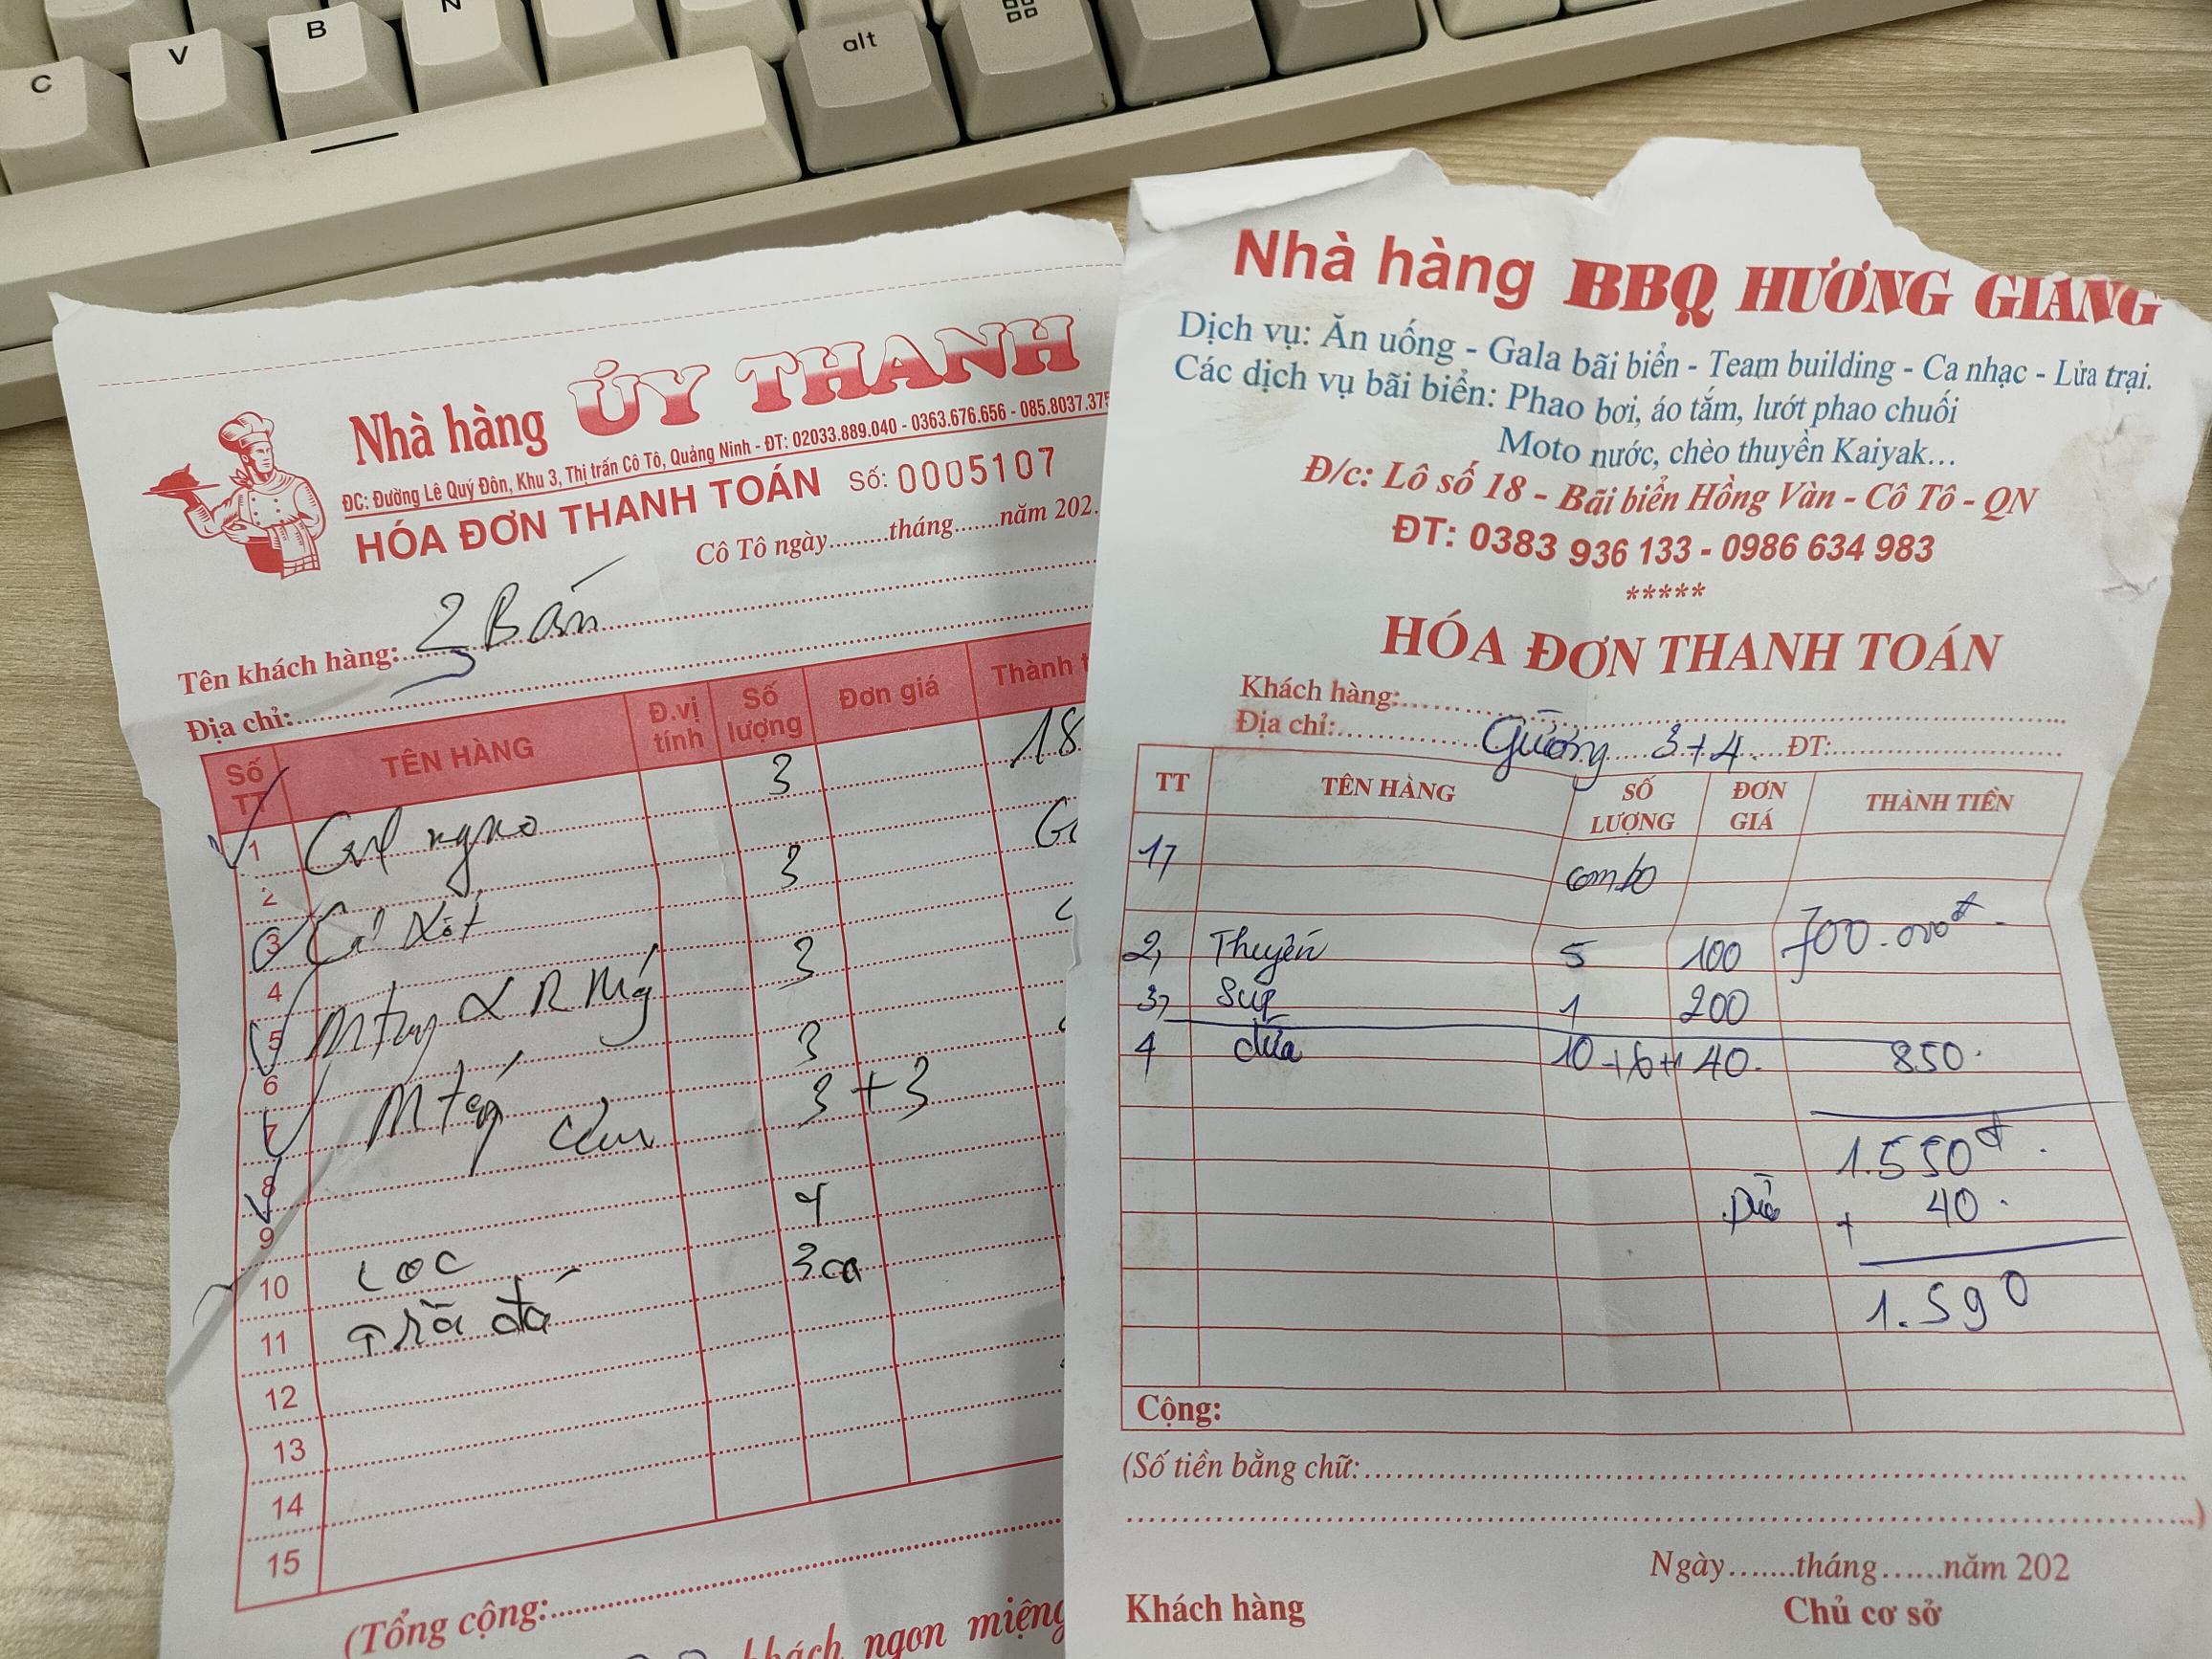 C
V
B
N
alt
Nhà hàng ỦY THANH
ĐC: Đường Lê Quý Đôn, Khu 3, Thị trấn Cô Tô, Quảng Ninh - ĐT: 02033.889.040 - 0363.676.656 - 085.8037.375
HÓA ĐƠN THANH TOÁN Số: 0005107
Cô Tô ngày.........tháng.......năm 202.
Tên khách hàng: 3 Bán
Địa chỉ:
Số TT TÊN HÀNG Đ.vị tính Số lượng Đơn giá Thành t
1 3 18
2
3 Cá xốt 3
4
5 3
6
7 3
8 3+3
9
10 LOC 4
11 Trà đá 3 ca
12
13
14
15
(Tổng cộng:
khách ngon miệng
Nhà hàng BBQ HƯƠNG GIANG
Dịch vụ: Ăn uống - Gala bãi biển - Team building - Ca nhạc - Lửa trại.
Các dịch vụ bãi biển: Phao bơi, áo tắm, lướt phao chuối
Moto nước, chèo thuyền Kaiyak...
Đ/c: Lô số 18 - Bãi biển Hồng Vàn - Cô Tô - QN
ĐT: 0383 936 133 - 0986 634 983
*****
HÓA ĐƠN THANH TOÁN
Khách hàng:
Địa chỉ: Giường 3+4 ĐT:
TT TÊN HÀNG SỐ LƯỢNG ĐƠN GIÁ THÀNH TIỀN
1, combo 700.000đ
2, Thuyền 5 100
3, Sup 1 200
4 dừa 10+6+1 40. 850.
1.550đ
Dừa + 40.
1.590
Cộng:
(Số tiền bằng chữ:
)
Ngày.......tháng......năm 202
Khách hàng Chủ cơ sở